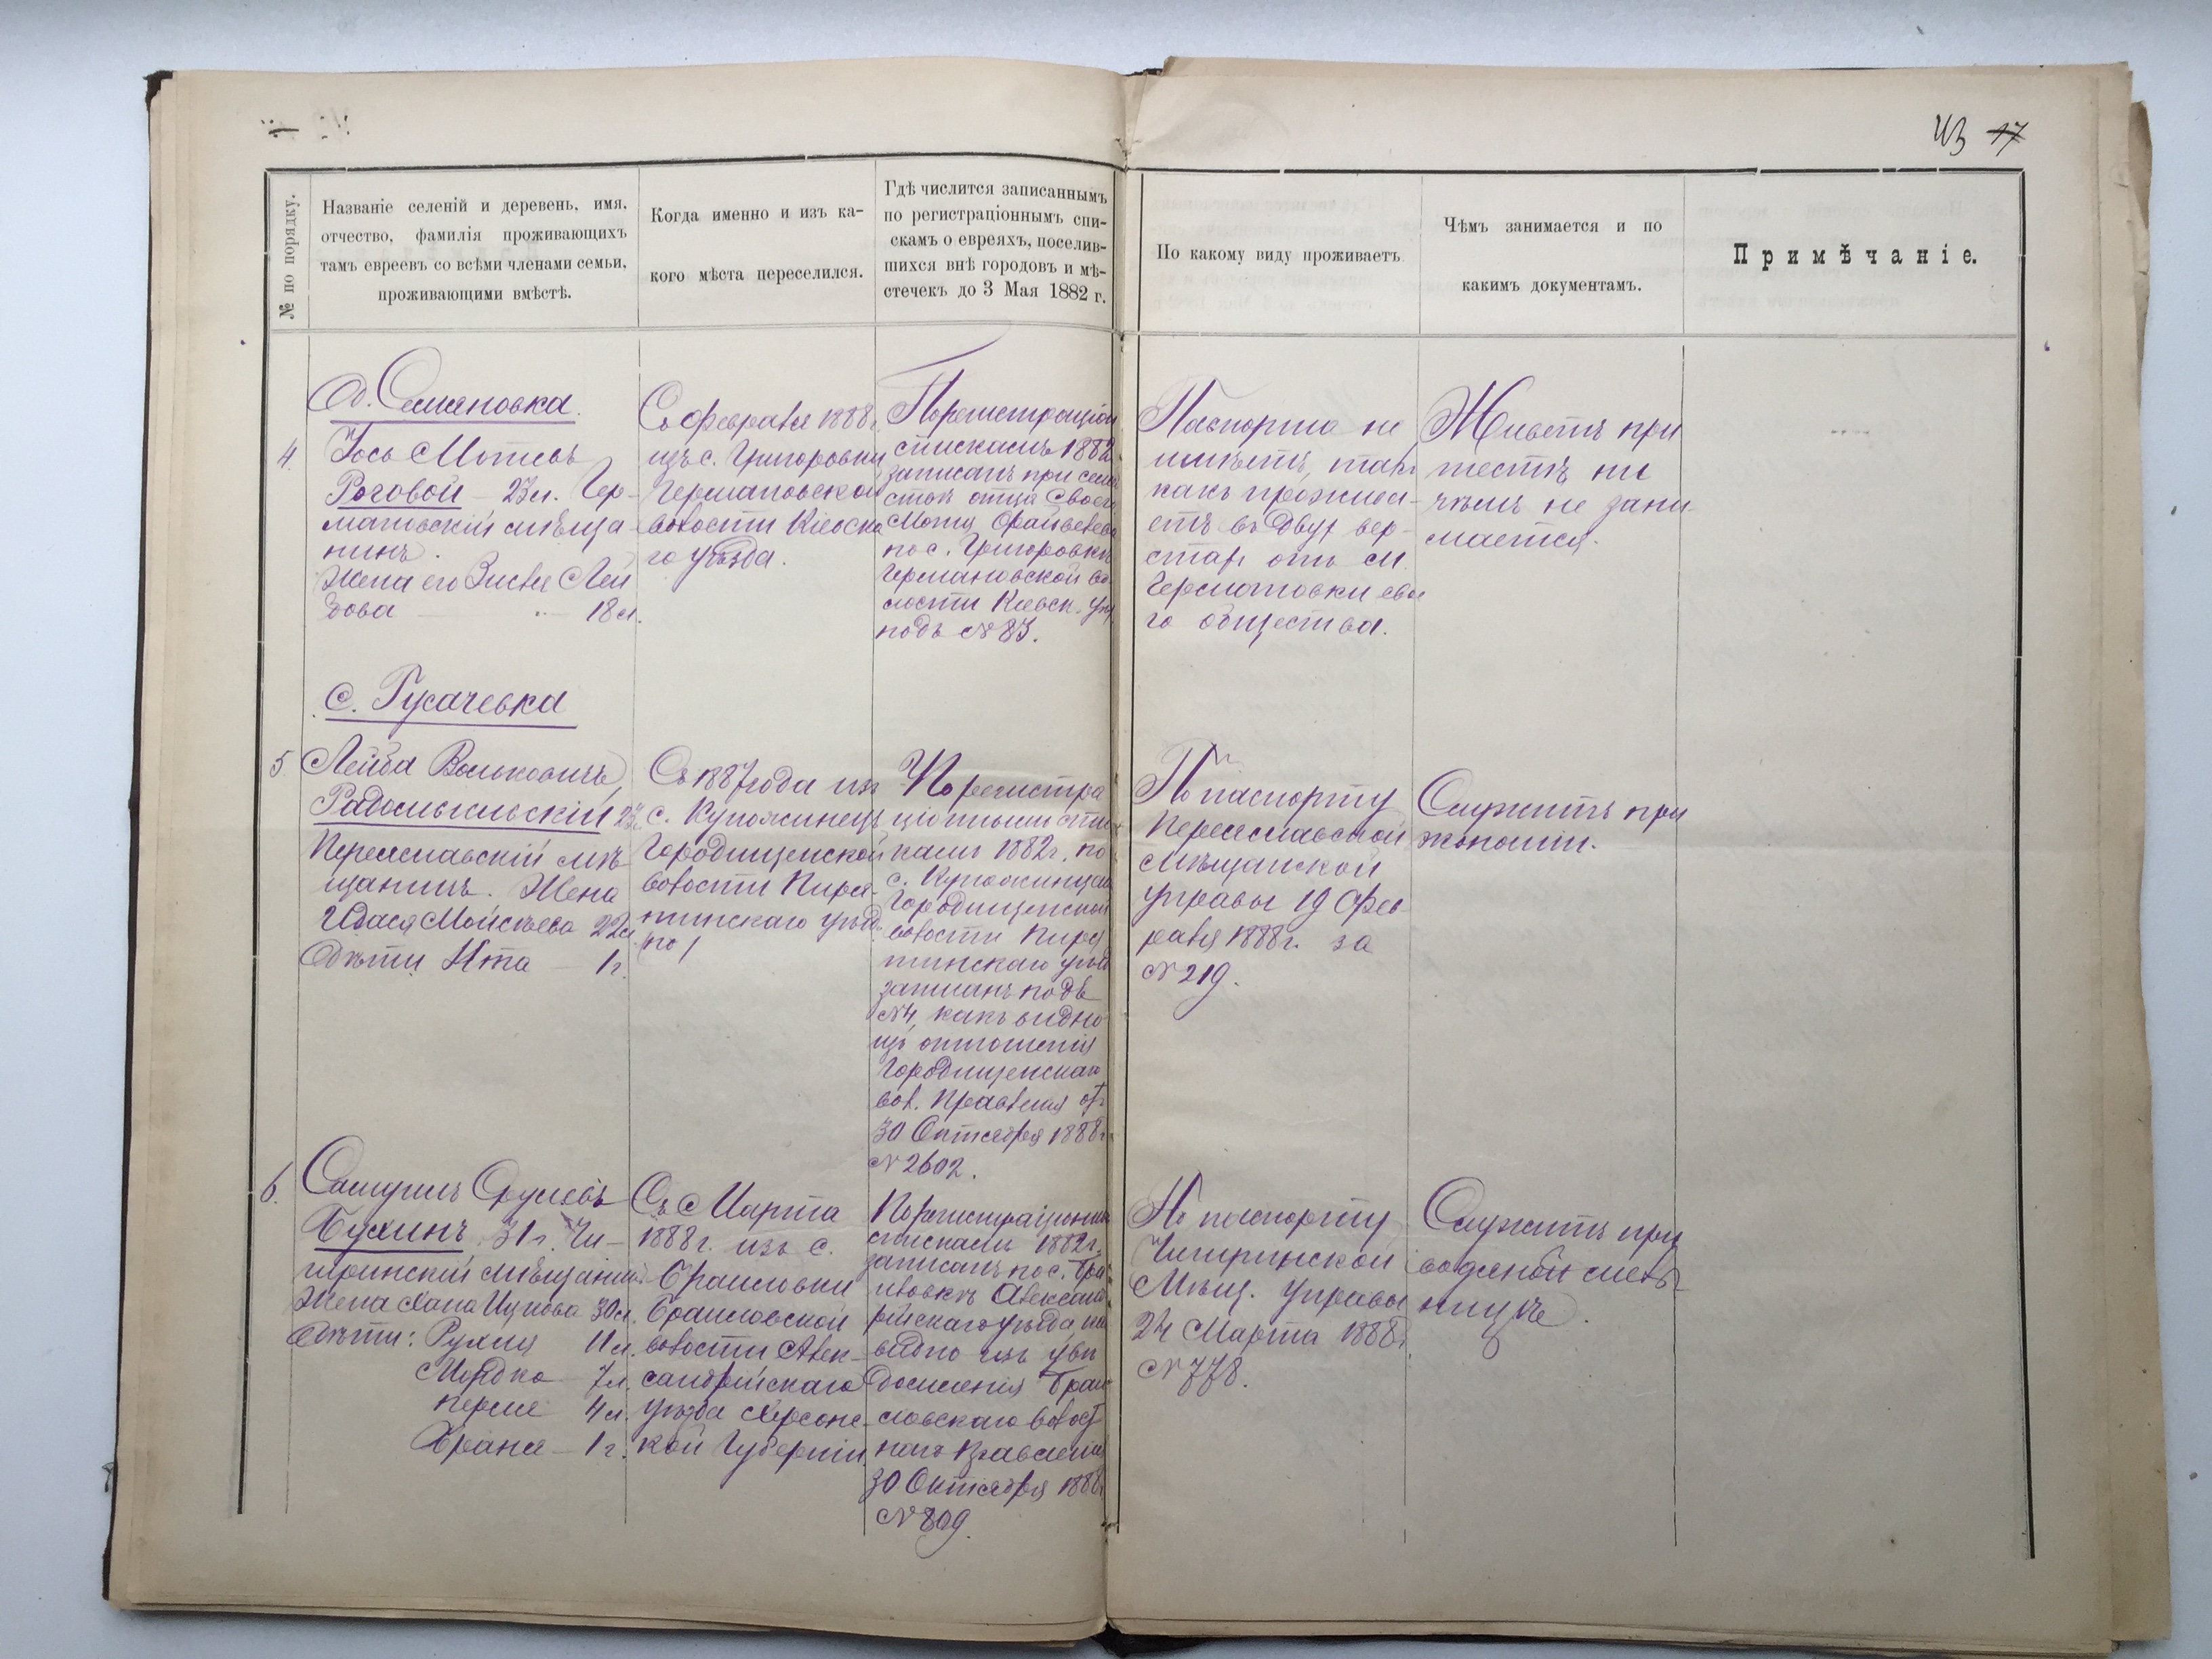 43 17
№ по порядку.
Названіе селеній и деревень, имя,
отчество, фамилія проживающихъ
тамъ евреевъ со всѣми членами семьи,
проживающими вмѣстѣ.
Когда именно и изъ ка-
кого мѣста переселился.
Гдѣ числится записаннымъ
по регистраціоннымъ спи-
скамъ о евреяхъ, поселив-
шихся внѣ городовъ и мѣ-
стечекъ до 3 Мая 1882 г.
По какому виду проживаетъ
Чѣмъ занимается и по
какимъ документамъ.
Примѣчаніе.
д. Семеновка.
4.
Іось Мотевъ
Роговой – 23 л. Гер-
мановскій мѣща
нинъ.
Жена его Лей
бова — 18 л.
Съ февраля 1888 г.
изъ с. Григоровки
Германовской
волости Кіевска
го уѣзда.
По регистраціон
спискамъ 1882
записанъ при семе
ствѣ отца своего
Моти
по с. Григоровкѣ
Германовской во
лости Кіевск. уѣз
подъ № 83.
Паспорта не
имѣетъ, такъ
какъ прожива-
етъ въ двух вер-
стах отъ м.
Германовки свое
го общества.
Живетъ при
тестѣ ни
чѣмъ не зани
мается.
с. Гусачевка
5.
Лейба Вольковичъ
Радомысльскій 23
Переяславскій мѣ
щанинъ. Жена
Мойсѣева 22 л.
Дѣти Ита — 1 г.
Съ 1887 года изъ
с. Куложинецъ
Городищенской
волости Пиря-
тинскаго уѣзд
По регистра
ціоннымъ спис
камъ 1882 г. по
с. Куложинцам
Городищенской
волости Пиря
тинскаго уѣзд
записанъ подъ
№ 4, какъ видно
изъ отношенія
Городищенскаго
вол. Правленія от
30 Октября 1888 г.
№ 2602.
По паспорту
Переяславской
мѣщанской
управы 19 Фев-
раля 1888 г. за
№ 219.
Служитъ при
экономіи.
6.
Самуилъ Срулевъ
Бухинъ 31 г. Чи-
гиринскій мѣщанинъ
Жена Хана Ицкова 30 л.
Дѣти: Рухля 11 л.
Мордко 7 л.
Перля 4 л.
Храня – 1 г.
Съ Марта
1888 г. изъ с.
Браиловки
Браиловской
волости Алек-
сандрійскаго
уѣзда Херсонс-
кой Губерніи.
По регистраціонны
спискамъ 1882 г.
записанъ по с. Бра
иловкѣ Алексан
рійскаго уѣзда, как
видно изъ увѣ
домленія Браи
ловскаго волост
наго Правленія
30 Октября 1888
№ 809.
По паспорту
Чигиринской
Мѣщ. управы
24 Марта 1888 г.
№ 778.
Служитъ при
водяной мель
ницѣ.